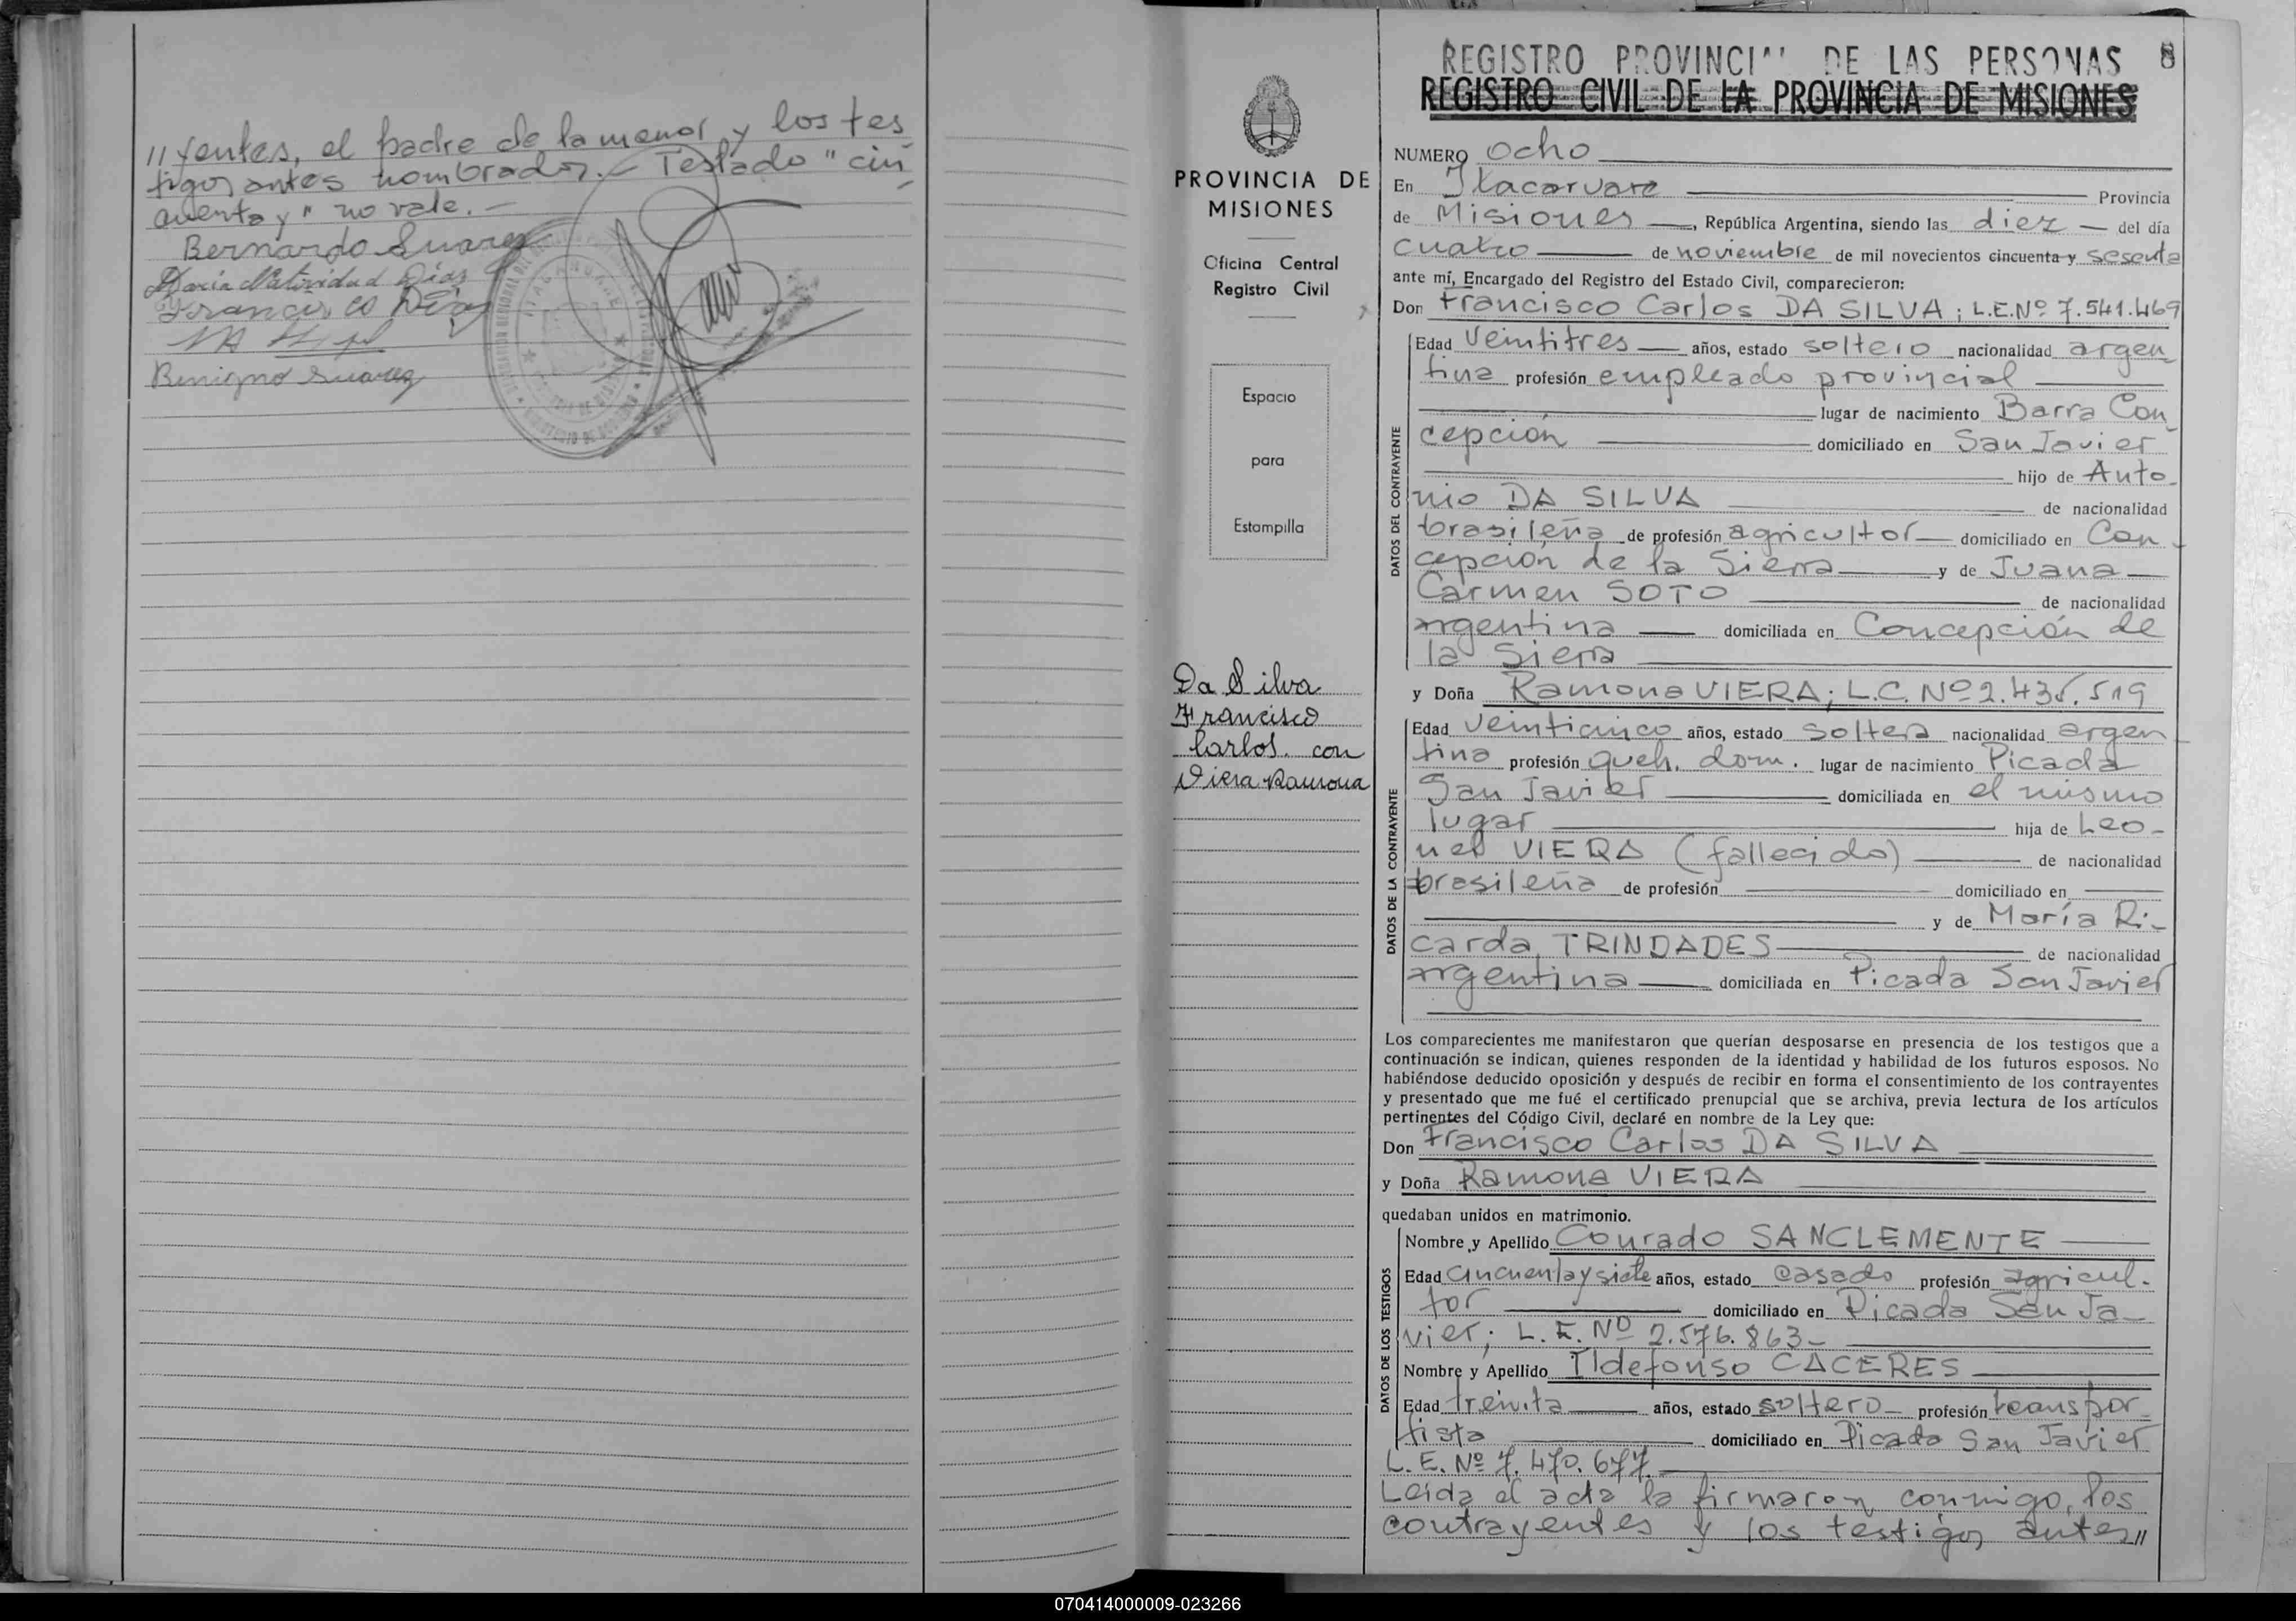 // yentes, el padre de la menor y los tes
tigos antes nombrados.- Testado "cin
cuenta y" no vale.-
Bernardo Suarez
María Natividad Días
Francisco Días
Benigno Suarez
PROVINCIA DE
MISIONES
Oficina Central
Registro Civil
Espacio
para
Estampilla
Da Silva
Francisco
Carlos con
Viera Ramona
REGISTRO PROVINCIAL DE LAS PERSONAS 8
REGISTRO CIVIL DE LA PROVINCIA DE MISIONES
NUMERO Ocho
En Itacaruaré Provincia
de Misiones, República Argentina, siendo las diez del día
cuatro de noviembre de mil novecientos cincuenta y sesenta
ante mí, Encargado del Registro del Estado Civil, comparecieron:
Don Francisco Carlos DA SILVA; L.E.Nº 7.541.469
DATOS DEL CONTRAYENTE
Edad Veintitres años, estado soltero nacionalidad argen
tina profesión empleado provincial
lugar de nacimiento Barra Con
cepción domiciliado en San Javier
hijo de Anto-
nio DA SILVA de nacionalidad
brasileña de profesión agricultor domiciliado en Con
cepción de la Sierra y de Juana
Carmen SOTO de nacionalidad
argentina domiciliada en Concepción de
la Sierra
y Doña Ramona VIERA; L.C. Nº 2.435.519
DATOS DE LA CONTRAYENTE
Edad veinticinco años, estado soltera nacionalidad argen
tina profesión queh. dom. lugar de nacimiento Picada
San Javier domiciliada en el mismo
lugar hija de Leo-
nel VIERA (fallecido) de nacionalidad
brasileña de profesión domiciliado en
y de María Ri-
carda TRINDADES de nacionalidad
argentina domiciliada en Picada San Javier
Los comparecientes me manifestaron que querían desposarse en presencia de los testigos que a
continuación se indican, quienes responden de la identidad y habilidad de los futuros esposos. No
habiéndose deducido oposición y después de recibir en forma el consentimiento de los contrayentes
y presentado que me fué el certificado prenupcial que se archiva, previa lectura de los artículos
pertinentes del Código Civil, declaré en nombre de la Ley que:
Don Francisco Carlos DA SILVA
y Doña Ramona VIERA
quedaban unidos en matrimonio.
DATOS DE LOS TESTIGOS
Nombre y Apellido Conrado SANCLEMENTE
Edad cincuenta y siete años, estado casado profesión agricul-
tor domiciliado en Picada San Ja-
vier; L.E. Nº 2.576.863-
Nombre y Apellido Ildefonso CACERES
Edad treinta años, estado soltero profesión transpor-
tista domiciliado en Picada San Javier
L.E. Nº 7.470.677.
Leída el acta la firmaron conmigo, los
contrayentes y los testigos antes//
070414000009-023266